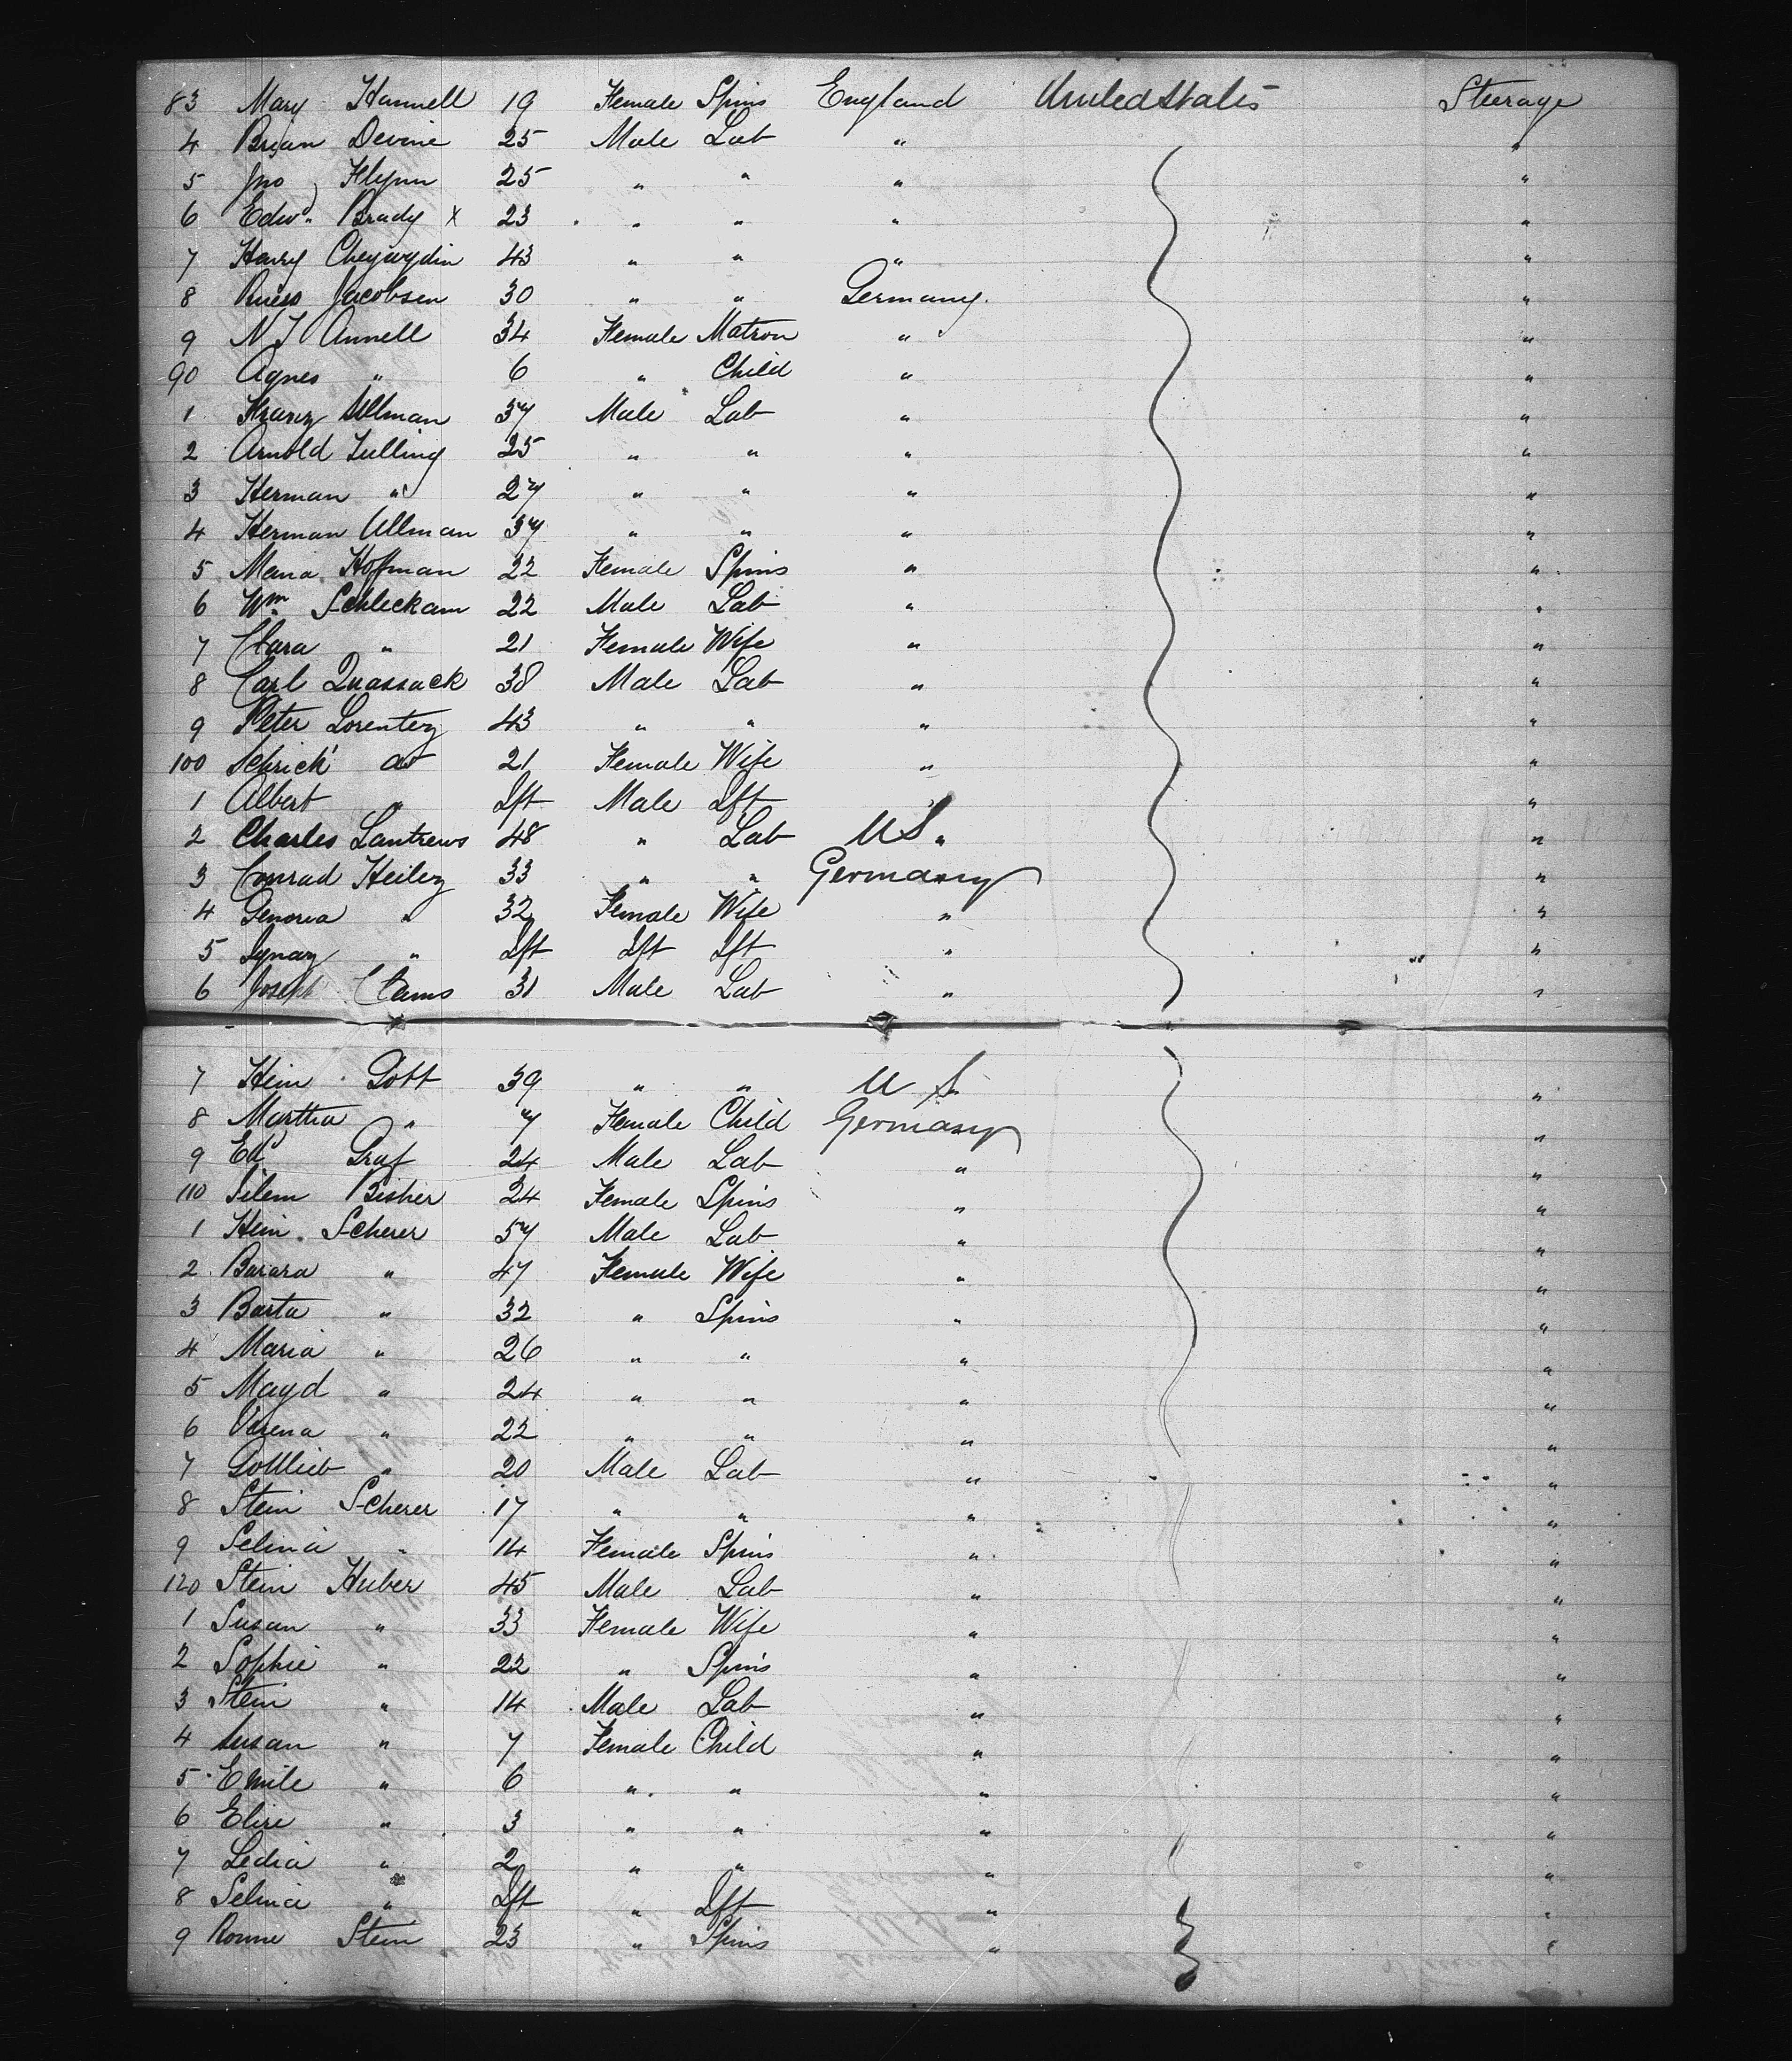 83 Mary Hannell 19 Female Spins England United States Steerage
4 Brian Devine 25 Male Lab " "
5 Jno Flynn 25 " " " "
6 Edwd. Brady x 23 " " " "
7 Harry 43 " " " "
8 Jacobsen 30 " " Germany. "
9 N J Annell 34 Female Matron " "
90 Agnes " 6 " Child " "
1 Franz Ullman 37 Male Lab " "
2 Arnold Lulling 25 " " " "
3 Herman " 27 " " " "
4 Herman Ullman 37 " " " "
5 Maria Hoffman 22 Female Spins " "
6 Wm Schleckam 22 Male Lab " "
7 Clara " 21 Female Wife " "
8 Carl Quassack 38 Male Lab " "
9 Peter Lorentez 43 " " " "
100 Schrick do 21 Female Wife " "
1 Albert " Ift Male Ift " "
2 Charles Lantrews 48 " Lab U S "
3 Conrad Heilez 33 " " Germany "
4 Genoria " 32 Female Wife " "
5 Ignaz " Ift Ift Ift " "
6 Joseph Clams 31 Male Lab " "
7 Hein Gott 39 " " U S "
8 Martha " 7 Female Child Germany "
9 Ed Graf 24 Male Lab " "
110 Silem Bisher 24 Female Spins " "
1 Hein. Scherer 57 Male Lab " "
2 Barara " 47 Female Wife " "
3 Barta " 32 " Spins " "
4 Maria " 26 " " " "
5 Mayd " 24 " " " "
6 Verena " 22 " " " "
7 Gottlieb " 20 Male Lab " "
8 Stein Scherer 17 " " " "
9 Selina " 14 Female Spins " "
120 Stein Huber 45 Male Lab " "
1 Susan " 33 Female Wife " "
2 Sophie " 22 " Spins " "
3 Stein " 14 Male Lab " "
4 Susan " 7 Female Child " "
5 Emile " 6 " " " "
6 Elise " 3 " " " "
7 Ledia " 2 " " " "
8 Selina " Ift " Ift " "
9 Stein 23 " Spins " "